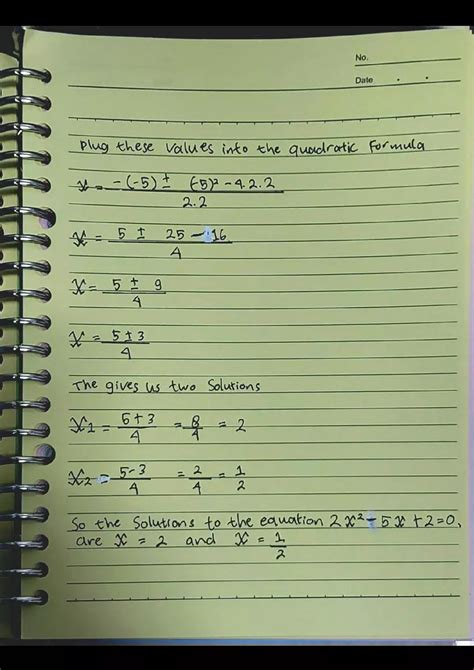 No.
Date . .
Plug these values into the quadratic formula
x = -(-5) ± (-5)² - 4.2.2
2.2
x = 5 ± 25 - 16
4
x = 5 ± 9
4
x = 5 ± 3
4
The gives us two Solutions
x1 = 5+3/4 = 8/4 = 2
x2 = 5-3/4 = 2/4 = 1/2
So the Solutions to the equation 2x² - 5x + 2 = 0,
are x = 2 and x = 1/2